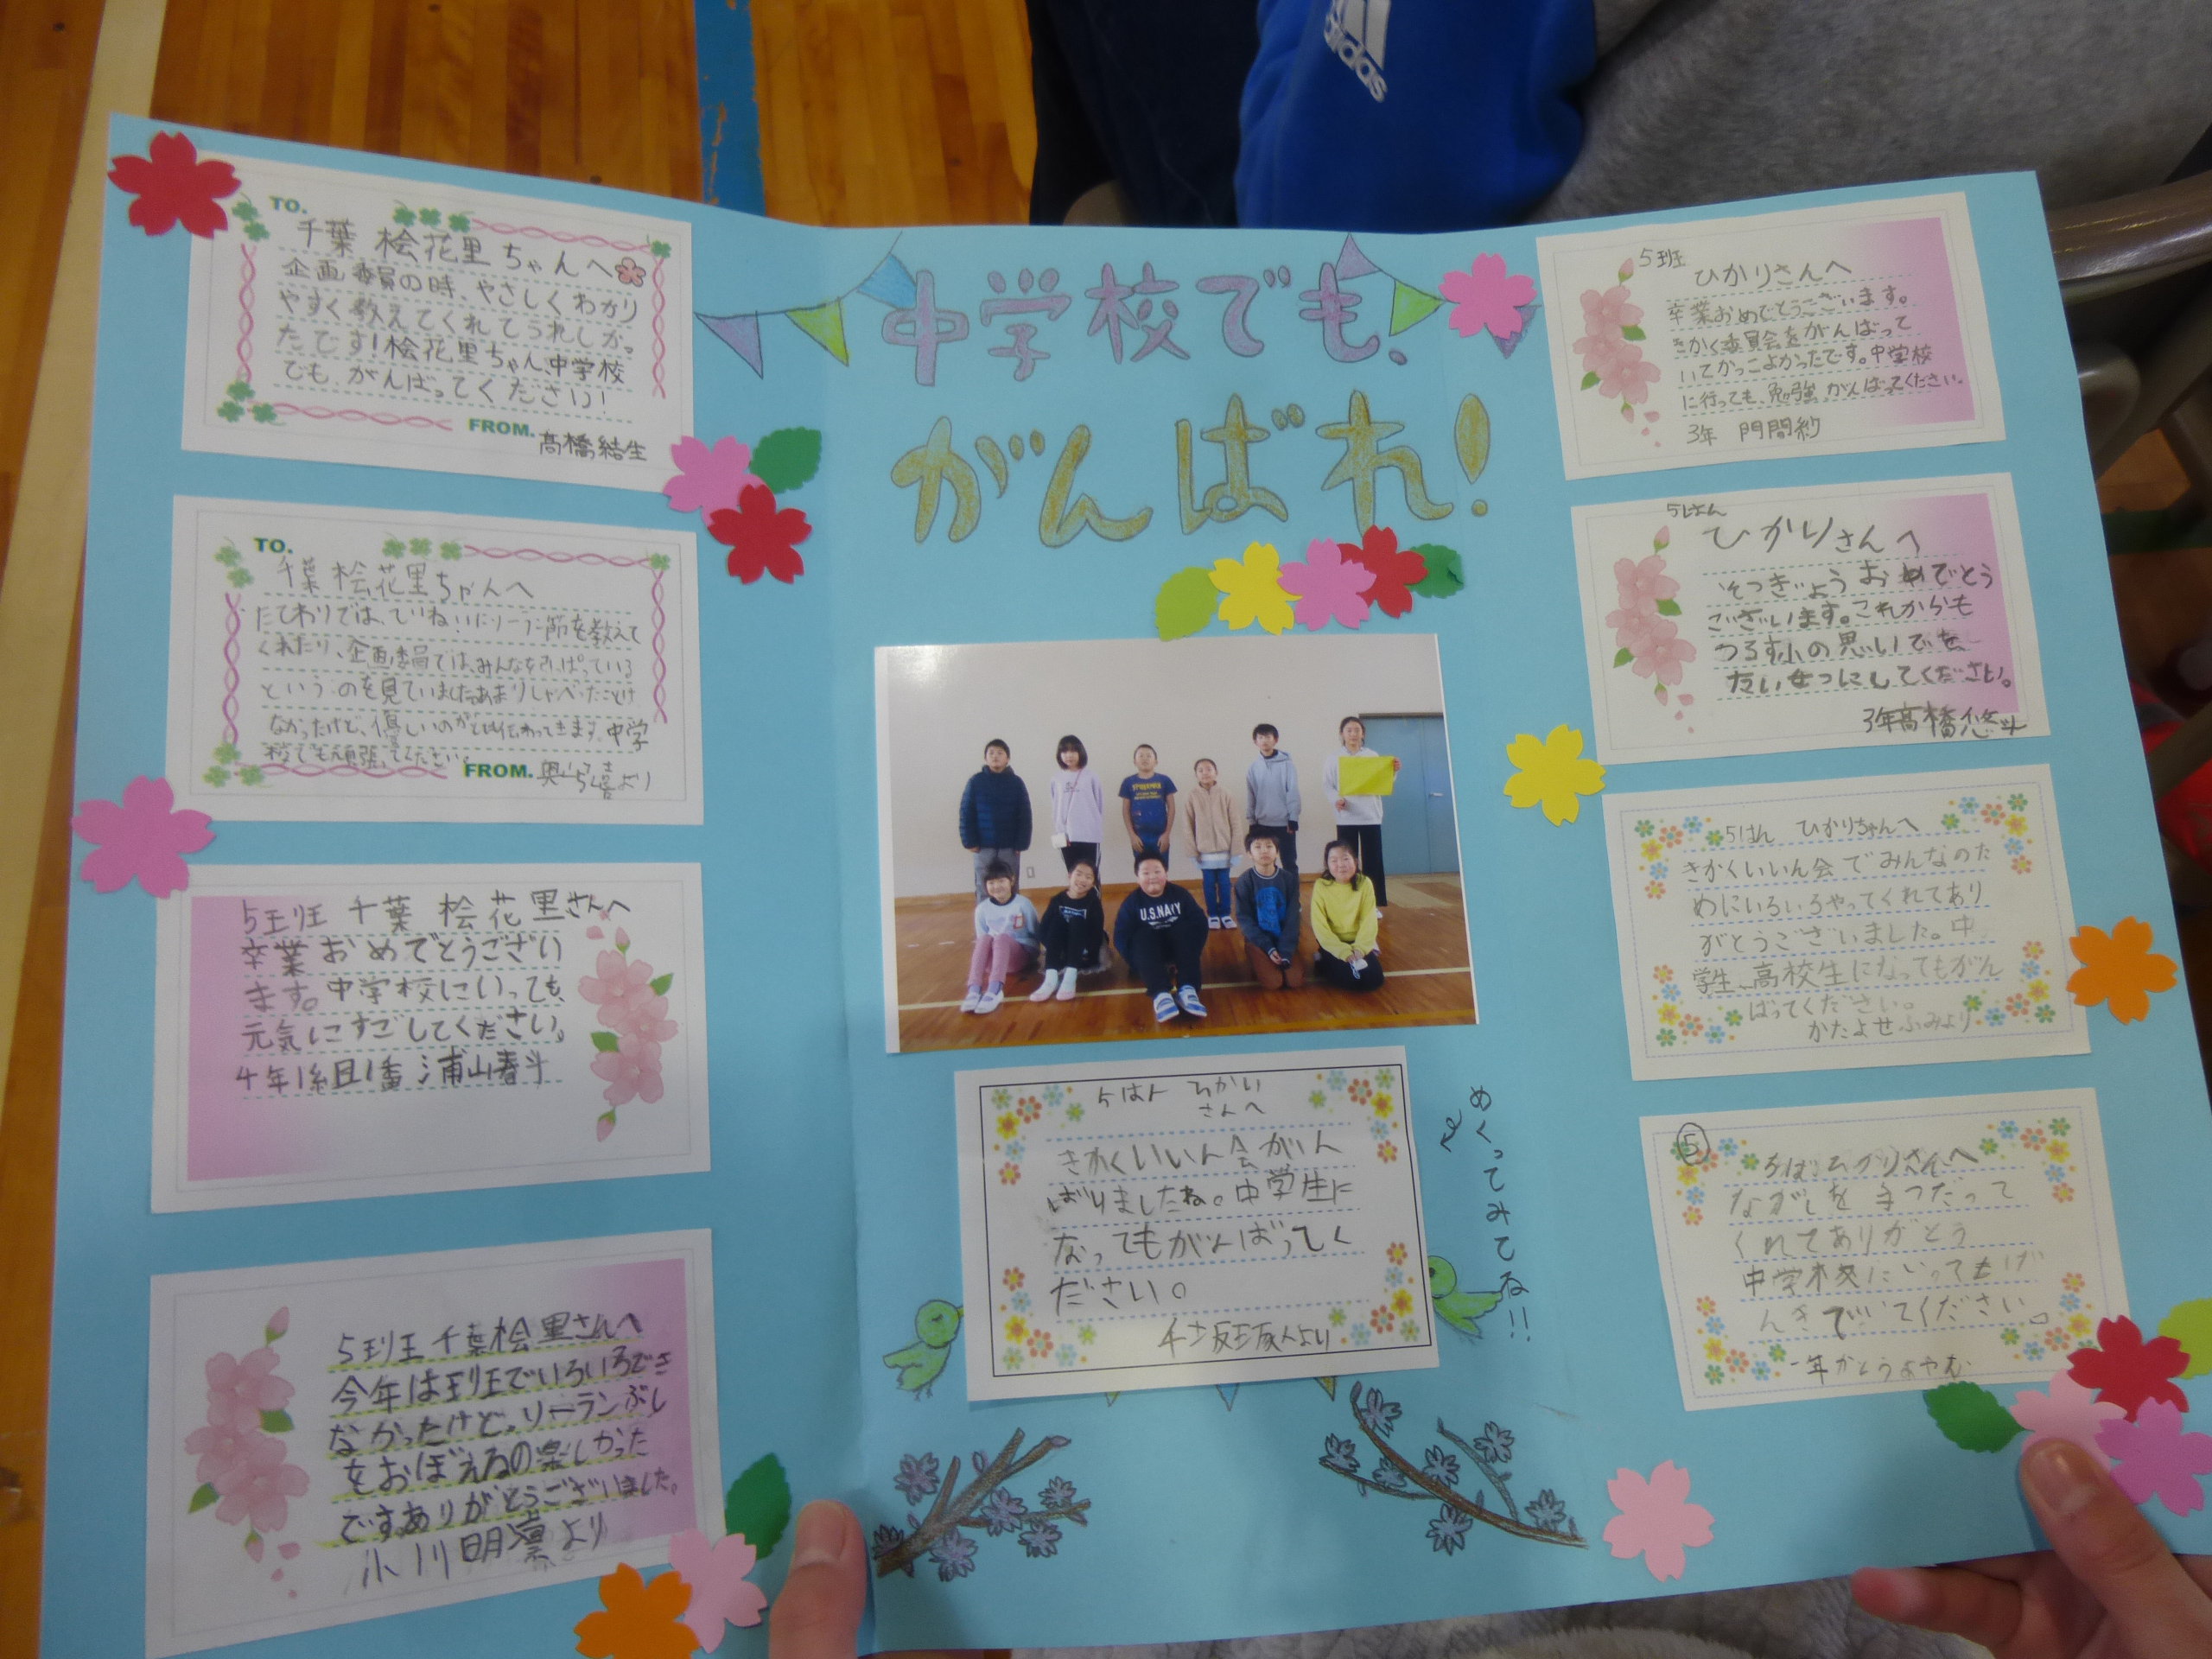 adidas
TO.
千葉 桧花里ちゃんへ
企画委員の時、やさしくわかり
やすく教えてくれてうれしかっ
たです!桧花里ちゃん、中学校
でも、がんばってください!
FROM. 髙橋結生
TO.
千葉 桧花里ちゃんへ
たてわりでは、ていねいにソーラン節を教えて
くれたり、企画委員では、みんなを引っぱっている
というのを見ていました。あまりしゃべったことは
なかったけど、優しいのが伝わってきます。中学
校でも頑張ってください。
FROM. 奥 より
5班 千葉 桧花里さんへ
卒業おめでとうござい
ます。中学校にいっても、
元気にすごしてください。
4年1組1番 浦山春斗
5班 千葉桧里さんへ
今年は班でいろいろでき
なかったけど。ソーランぶし
をおぼえるの楽しかった
です。ありがとうございました。
小川明凛より
中学校でも、
がんばれ!
U.S.NAVY
5はん ひかり
さんへ
きかくいいん会がん
ばりましたね。中学生に
なってもがんばってく
ださい。
より
めくってみてね!!
5班
ひかりさんへ
卒業おめでとうございます。
きかく委員会をがんばって
いてかっこよかったです。中学校
に行っても、勉強がんばってください。
3年 門間紗
5はん
ひかりさんへ
そつぎょうおめでとう
ございます。これからも
つるす小の思いでを
たいせつにしてください。
3年髙橋悠斗
5はん ひかりちゃんへ
きかくいいん会でみんなのた
めにいろいろやってくれてあり
がとうございました。中
学生、高校生になってもがん
ばってください。
かたよせ ふみより
⑤
5はん ひかりさんへ
ながしを手つだって
くれてありがとう
中学校にいってもげ
んきでいてください。
一年かとうよやむ